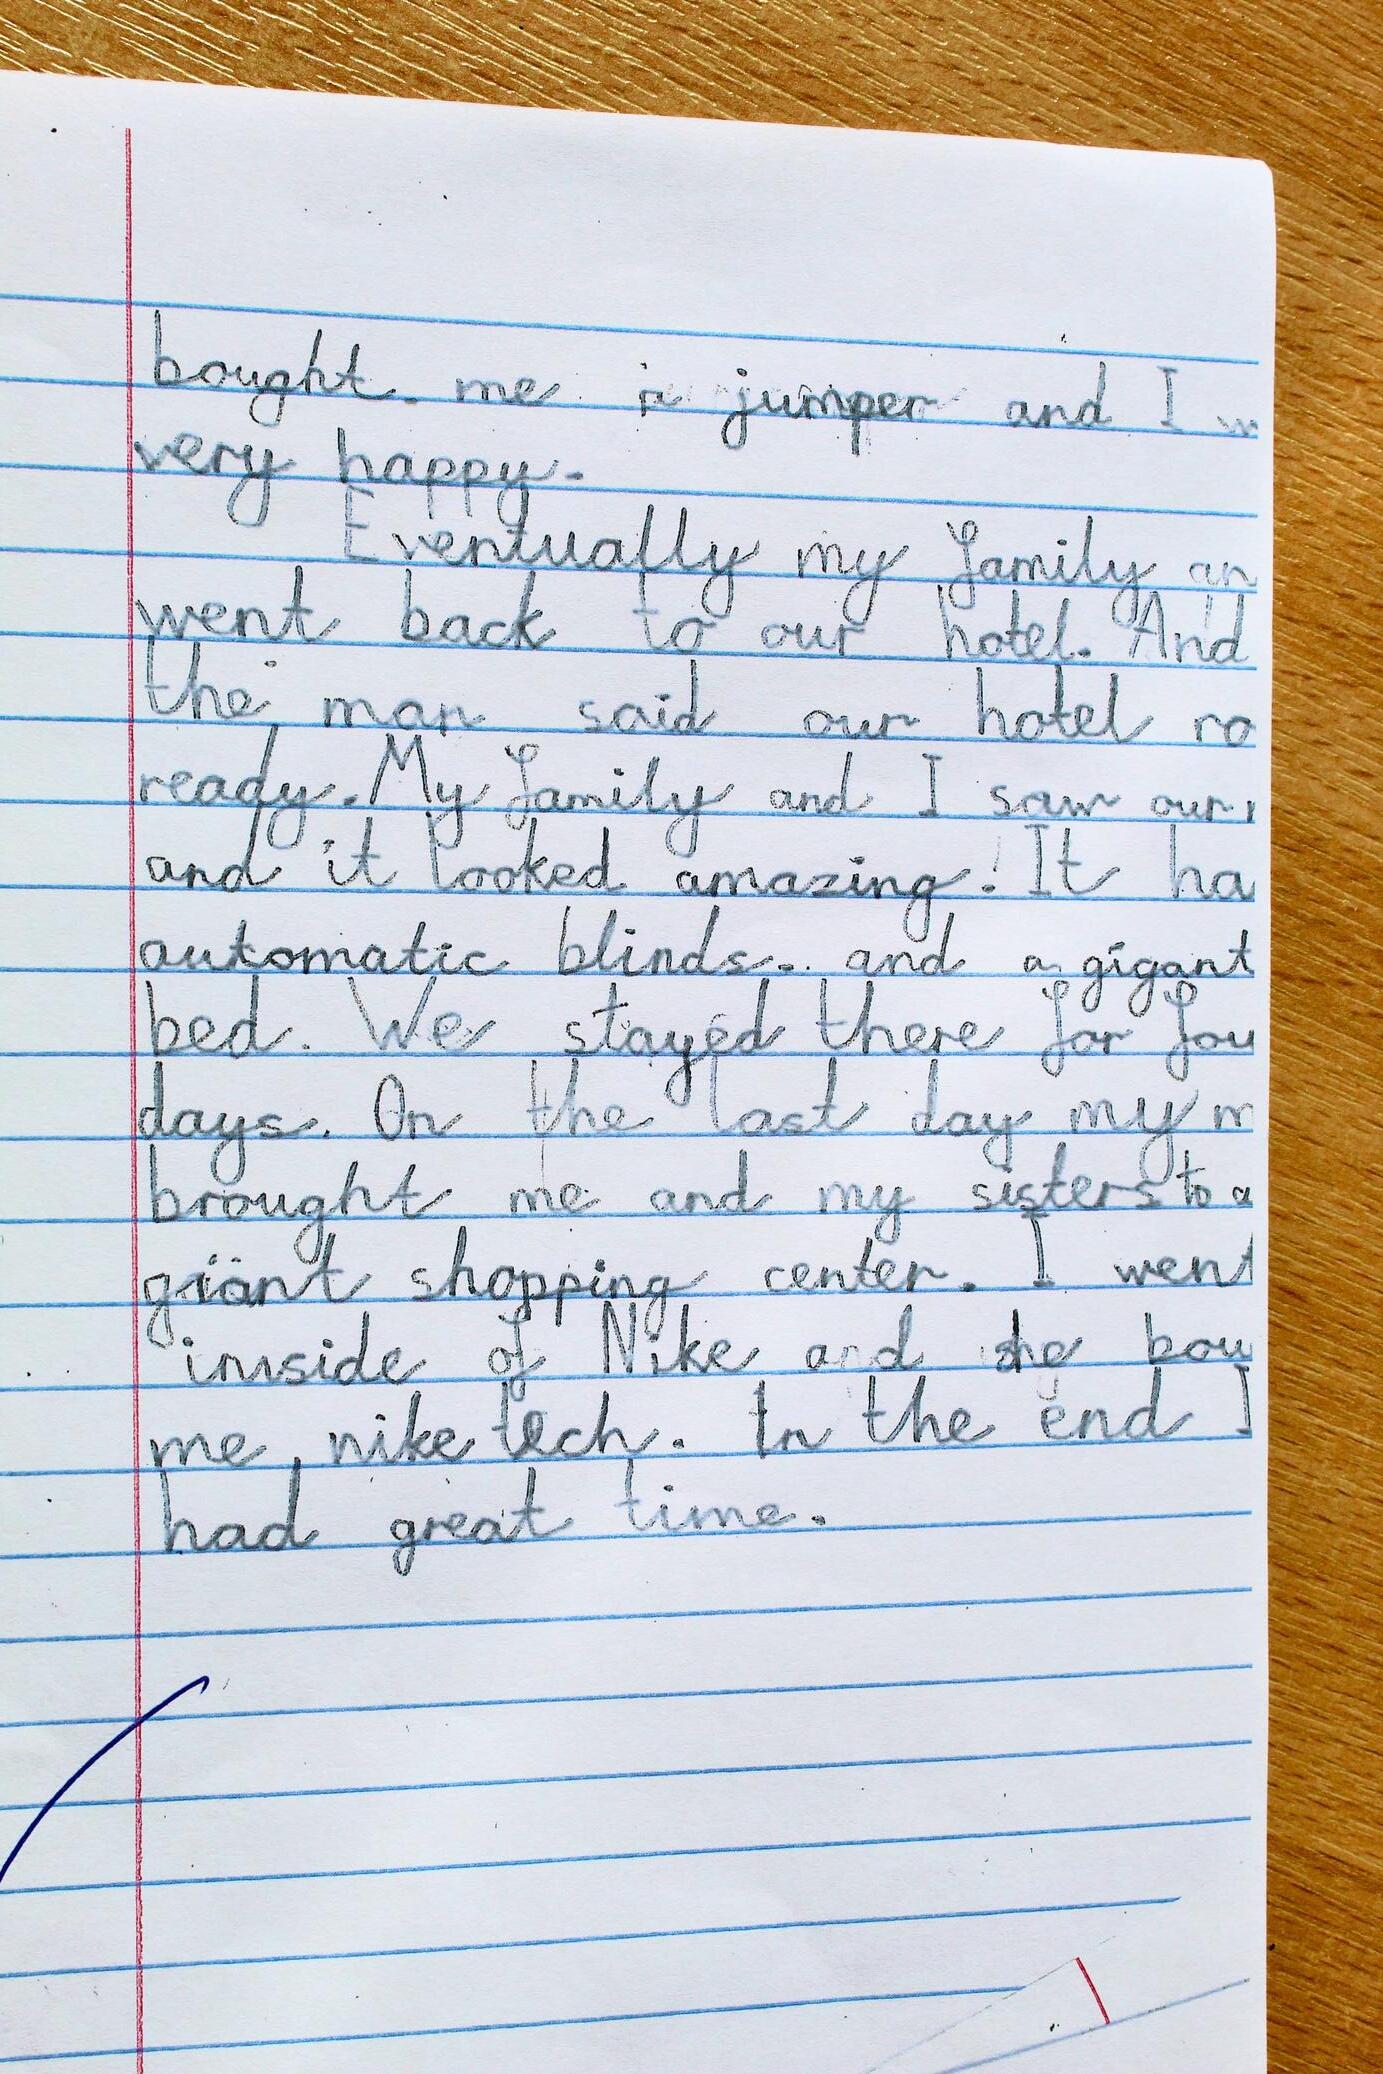 bought me a jumper and I w
very happy.
Eventually my family an
went back to our hotel. And
the man said our hotel ro
ready. My family and I saw our
and it looked amazing! It ha
automatic blinds. and a gigant
bed. We stayed there for fou
days. On the last day my m
brought me and my sisters to a
giant shopping center. I went
inside of Nike and she bou
me nike tech. In the end I
had great time.